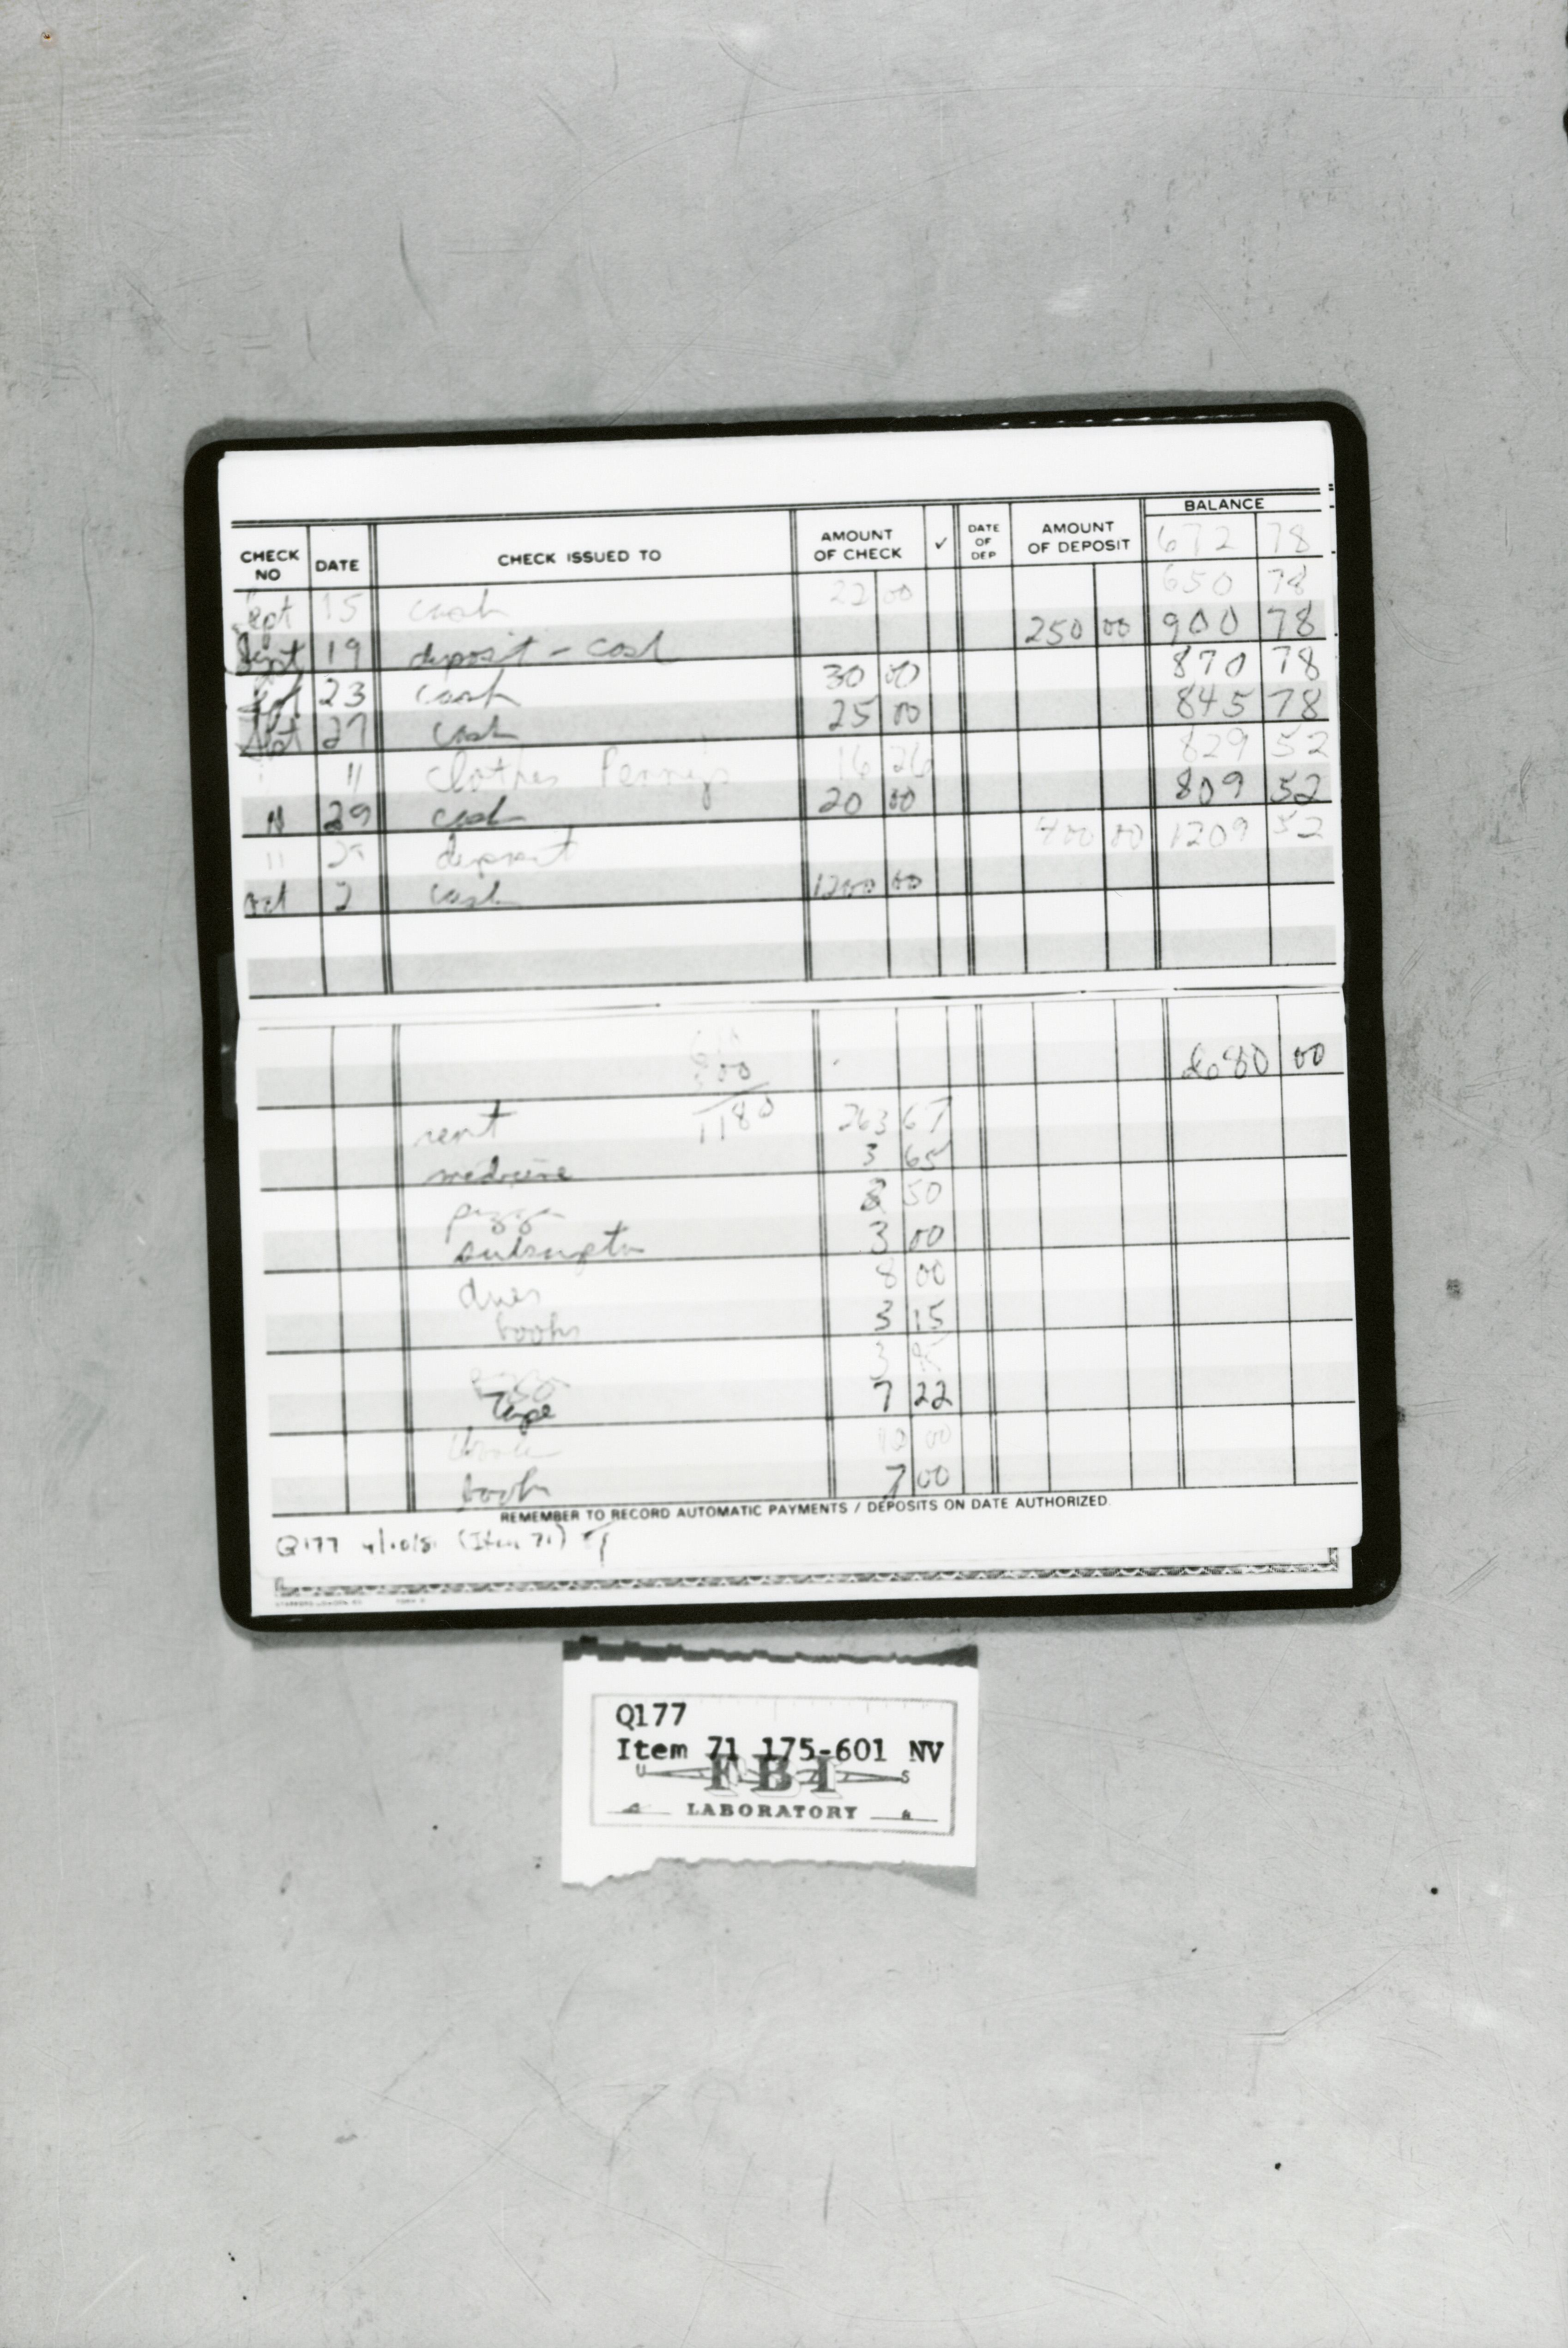 BALANCE
CHECK NO DATE CHECK ISSUED TO AMOUNT OF CHECK ✓ DATE OF DEP AMOUNT OF DEPOSIT 672 78
Sept 15 cash 22 00 650 78
Sept 19 deposit - cash 250 00 900 78
Sept 23 cash 30 00 870 78
Sept 27 cash 25 00 845 78
" " clothes Penny's 16 26 829 52
" 29 cash 20 00 809 52
" 29 deposit 400 00 1209 52
Oct 2 cash 1200 00
00 80 00
1180
rent 263 67
medicine 3 65
pizza 8 50
subscription 3 00
dues 8 00
books 3 15
3
Tape 7 22
10 00
book 7 00
REMEMBER TO RECORD AUTOMATIC PAYMENTS / DEPOSITS ON DATE AUTHORIZED.
Q177 4/10/81 (Item 71)
Q177
Item 71 175-601 NV
U FBI S
LABORATORY